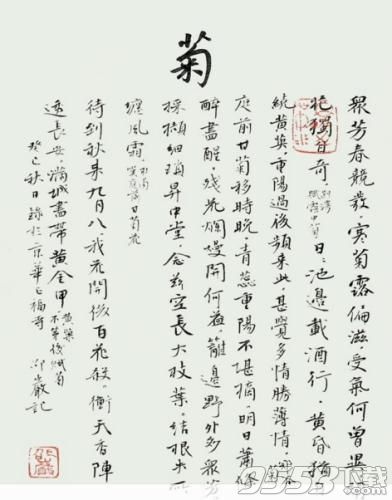 菊
眾芳春競發，寒菊露偏滋受氣何曾異
花獨自奇 日日池邊載酒行，黃昏猶
繞黃英重陽過後頻來此，甚覺多情勝薄情，
庭前甘菊移時晚，青蕊重陽不堪摘，明日蕭條
醉盡醒，殘花爛熳開何益，籬邊野外多眾芳
採擷細瑣昇中堂，念茲空長大枝葉，結根失所
纏風霜 杜甫
待到秋來九月八我花開後百花殺，衝天香陣
透長安，滿城盡帶黃金甲 黃巢 不第後賦菊
癸巳秋日錄於京華
9553下载